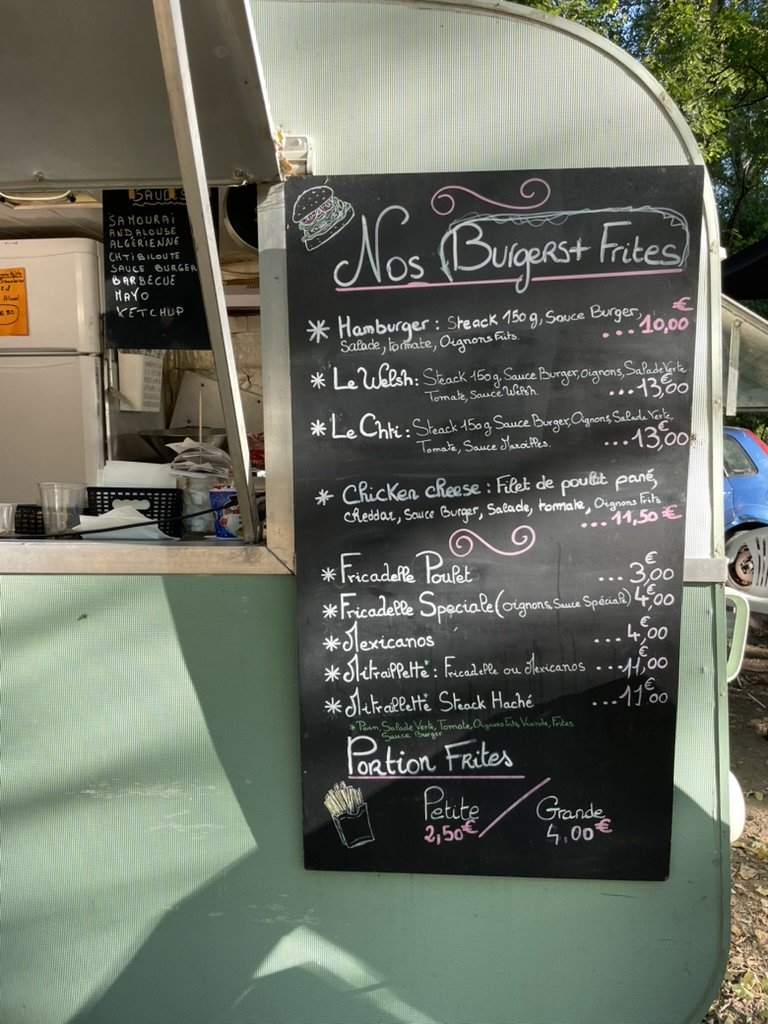 SAUCES
SAMOURAÏ
ANDALOUSE
ALGÉRIENNE
CHTIBILOUTE
SAUCE BURGER
BARBECUE
MAYO
KETCHUP
Nos Burgers + Frites
* Hamburger : Steack 150g, Sauce Burger,
Salade, tomate, Oignons Frits. ...10,00 €
* Le Welsh : Steack 150g, Sauce Burger, oignons, Salade Verte
Tomate, Sauce Welsh. ...13,00
* Le Chti : Steack 150g Sauce Burger, Oignons, Salade Verte,
Tomate, Sauce Maroilles. ...13,00
* Chicken cheese : Filet de poulet pané,
cheddar, Sauce Burger, Salade, tomate, Oignons Frits
...11,50 €
* Fricadelle Poulet ...3,00 €
* Fricadelle Speciale (oignons, Sauce Spéciale) 4,00 €
* Mexicanos ...4,00 €
* Mitraillette : Fricadelle ou Mexicanos ...11,00 €
* Mitraillette Steack Haché ...11,00 €
* Pain, Salade Verte, Tomate, Oignons Frits, Viande, Frites
Sauce Burger
Portion Frites
Petite / Grande
2,50€ 4,00€